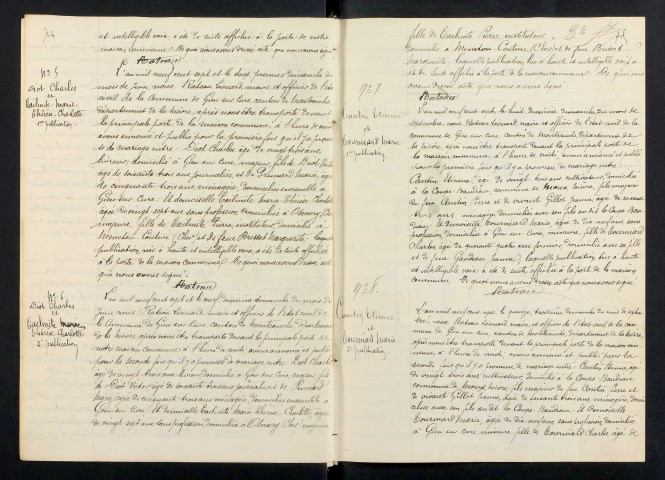 et intelligible voix a été de suite affichée à la porte de notre
maison commune. De quoi nous avons dressé acte que nous avons signé.
Rateau
N° 5
Diot Charles
et
Tachnite Marie
Thérèse Charlotte
1re publication
L'an mil neuf cent sept et le deux, premier dimanche du
mois de juin, nous Rateau Léonard maire et officier de l'état
civil de la Commune de Gien sur Cure canton de Montsauche
département de la Nièvre, après nous être transporté devant
la principale porte de la maison commune, à l'heure de midi
avons annoncé et publié pour la première fois qu'il y a promesse
de mariage entre Diot Charles âgé de vingt trois ans
domicilié à Gien sur Cure, majeur, fils de Diot
âgé de soixante trois ans journalier et de Bernard Marie, âgée
de cinquante trois ans ménagère domiciliés ensemble à
Gien sur Cure. Et demoiselle Tachnite Marie Thérèse Charlotte
âgée de vingt sept ans sans profession domiciliée à
majeure, fille de Tachnite Pierre, instituteur domicilié à
Menetou Couture (Cher) et de feue Bussot Marguerite, laquelle
publication, lue à haute et intelligible voix, a été de suite affichée
à la porte de la maison commune. De quoi nous avons dressé acte
que nous avons signé.
Rateau
N° 6
Diot Charles
et
Tachnite Marie
Thérèse Charlotte
2e publication
L'an mil neuf cent sept et le neuf deuxième dimanche du mois de
juin nous Rateau Léonard maire et officier de l'état civil de
la Commune de Gien sur Cure canton de Montsauche département
de la Nièvre après nous être transporté devant la principale porte de
notre maison commune à l'heure de midi avons annoncé et publié
pour la seconde fois qu'il y a promesse de mariage entre Diot Charles
âgé de vingt trois ans domicilié à Gien sur Cure, majeur, fils
de Diot âgé de soixante trois ans journalier et de Bernard
Marie, âgée de cinquante trois ans ménagère, domiciliés ensemble à
Gien sur Cure. Et demoiselle Tachnite Marie Thérèse Charlotte, âgée
de vingt sept ans sans profession, domiciliée à majeure,
fille de Tachnite Pierre, instituteur
domicilié à Menetou Couture (Cher) et de feue Bussot
Marguerite, laquelle publication, lue à haute et intelligible voix a
été de suite affichée à la porte de la maison commune. De quoi nous
avons dressé acte que nous avons signé.
Rateau
N° 7
Contin Etienne
et
Tournard Marie
1re publication
L'an mil neuf cent sept, le huit deuxième dimanche du mois de
septembre, nous Rateau Léonard, maire et officier de l'état civil de la
commune de Gien sur Cure, canton de Montsauche département de la
Nièvre après nous être transporté devant la principale porte de
la maison commune à l'heure de midi, avons annoncé et publié
pour la première fois qu'il y a promesse de mariage entre
Contin Etienne, âgé de vingt trois ans cultivateur, domicilié
à la Coupe commune de Nièvre, fils majeur
de feu Contin Pierre et de vivante Gillot Jeanne, âgée de soixante
trois ans ménagère domiciliée avec son fils au dit la Coupe
Et demoiselle Tournard Marie, âgée de dix neuf ans, sans profession,
domiciliée à Gien sur Cure, mineure, fille de Tournard
Charles âgé de quarante quatre ans fermier, domicilié avec sa fille
et de Jeanne, laquelle publication lue à haute
et intelligible voix a été de suite affichée à la porte de la maison
commune. De quoi nous avons dressé acte que nous avons signé.
Rateau
N° 8
Contin Etienne
et
Tournard Marie
2e publication
L'an mil neuf cent sept, le quinze troisième dimanche du mois de septembre
nous Rateau Léonard maire et officier de l'état civil de la commune
de Gien sur Cure canton de Montsauche, département de la Nièvre
après nous être transporté devant la principale porte de la maison
commune, à l'heure de midi, avons annoncé et publié pour la
seconde fois qu'il y a promesse de mariage entre Contin Etienne, âgé
de vingt trois ans cultivateur domicilié à la Coupe
commune de Nièvre, fils majeur de feu Contin Pierre et
de vivante Gillot Jeanne, âgée de soixante trois ans ménagère, domiciliée
avec son fils au dit la Coupe Et demoiselle
Tournard Marie, âgée de dix neuf ans, sans profession, domiciliée
à Gien sur Cure mineure, fille de Tournard Charles âgé de